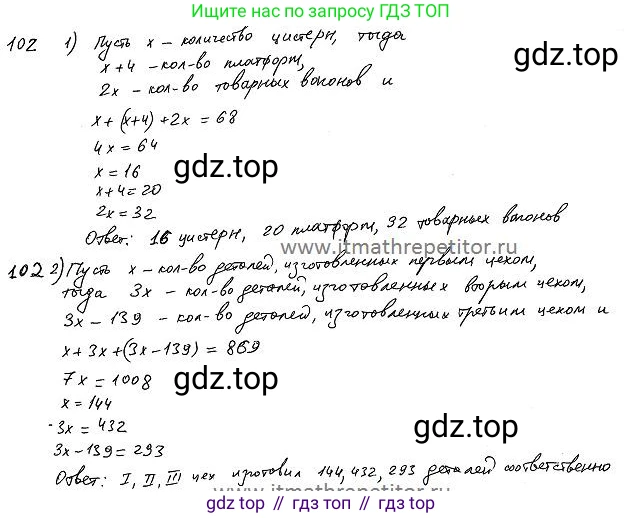 Ищите нас по запросу ГДЗ ТОП
102 1) Пусть x – количество цистерн, тогда
gdz.top
x+4 – кол-во платформ,
2x – кол-во товарных вагонов и
x + (x+4) + 2x = 68
4x = 64
gdz.top
x = 16
x+4 = 20
2x = 32
Ответ: 16 цистерн, 20 платформ, 32 товарных вагонов
www.itmathrepetitor.ru
102 2) Пусть x – кол-во деталей, изготовленных первым цехом,
тогда 3x – кол-во деталей, изготовленных вторым цехом,
3x – 139 – кол-во деталей, изготовленных третьим цехом и
x + 3x + (3x – 139) = 869
7x = 1008
gdz.top
x = 144
3x = 432
gdz.top
3x – 139 = 293
Ответ: I, II, III цех изготовил 144, 432, 293 деталей соответственно
www.itmathrepetitor.ru
gdz.top // gdz.top // gdz.top